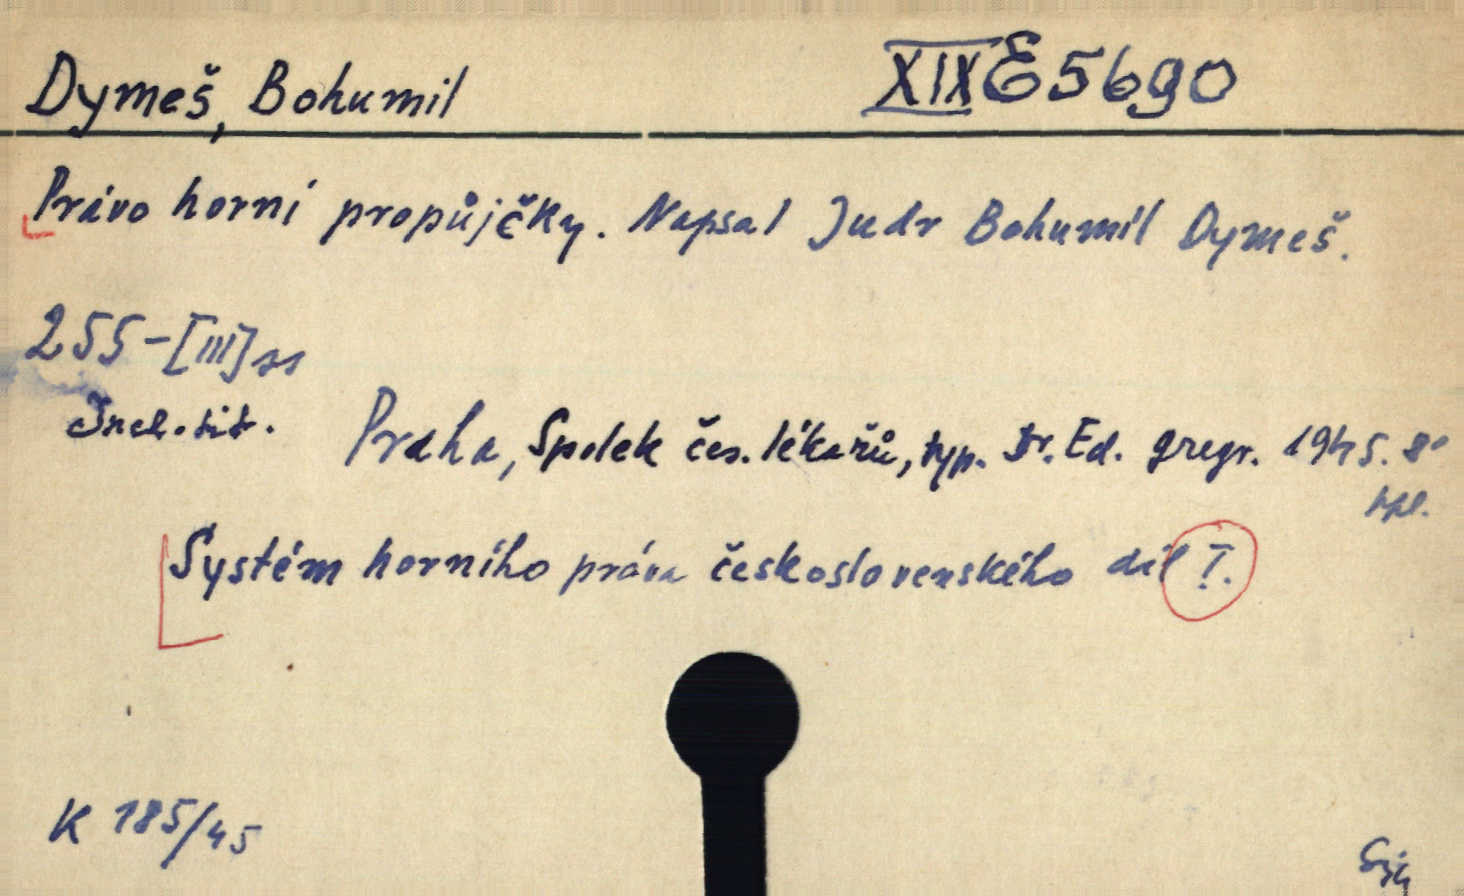 Dymeš, Bohumil XIX E 5690
Právo horní propůjčky. Napsal Judr Bohumil Dymeš.
255-[III] ss
Praha, Spolek čes. lékařů, typ. Dr. Ed. gregr. 1945. 8°
Systém horního práva československého díl I.
K 185/45